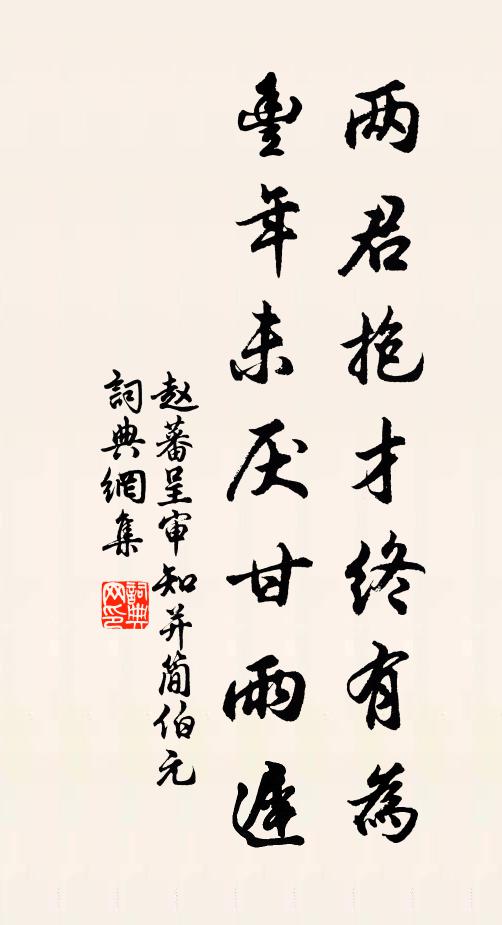 两君抱才终有為
豐年未厌甘雨遲
赵蕃呈审知并简伯元
詞典網集
詞典网印